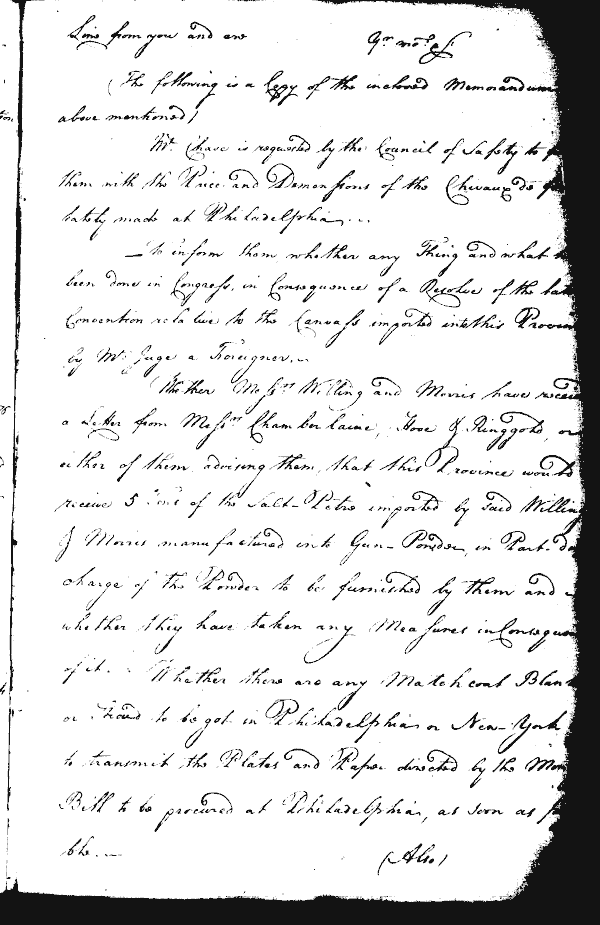 Line from you and are Yr. mo: &c.
(The following is a Copy of the inclosed Memorandum
above mentioned)
Mr. Chase is requested by the Council of Safety to
them with the Price and Demensions of the Chevaux de
lately made at Philadelphia. —
— to inform them whether any Thing and what
been done in Congress, in Consequence of a Resolve of the late
Convention relative to the Canvass imported into this Provin
by Mr. Guge a Foreigner. —
Whether Messrs. Willing and Morris have recei
a Letter from Messrs. Chamberlaine, Hooe & Ringgold, or
either of them, advising them, that this Province would
receive 5 Tons of the Salt-Petre imported by said Willing
& Morris manufactured into Gun-Powder, in Part-dis
charge of the Powder to be furnished by them and
whether they have taken any Measures in Consequen
of it. - Whether there are any Matchcoat Blank
or Stroud to be got in Philadelphia or New-York
to transmit the Plates and Paper directed by the Mon
Bill to be procured at Philadelphia, as soon as
ble. —
(Also)